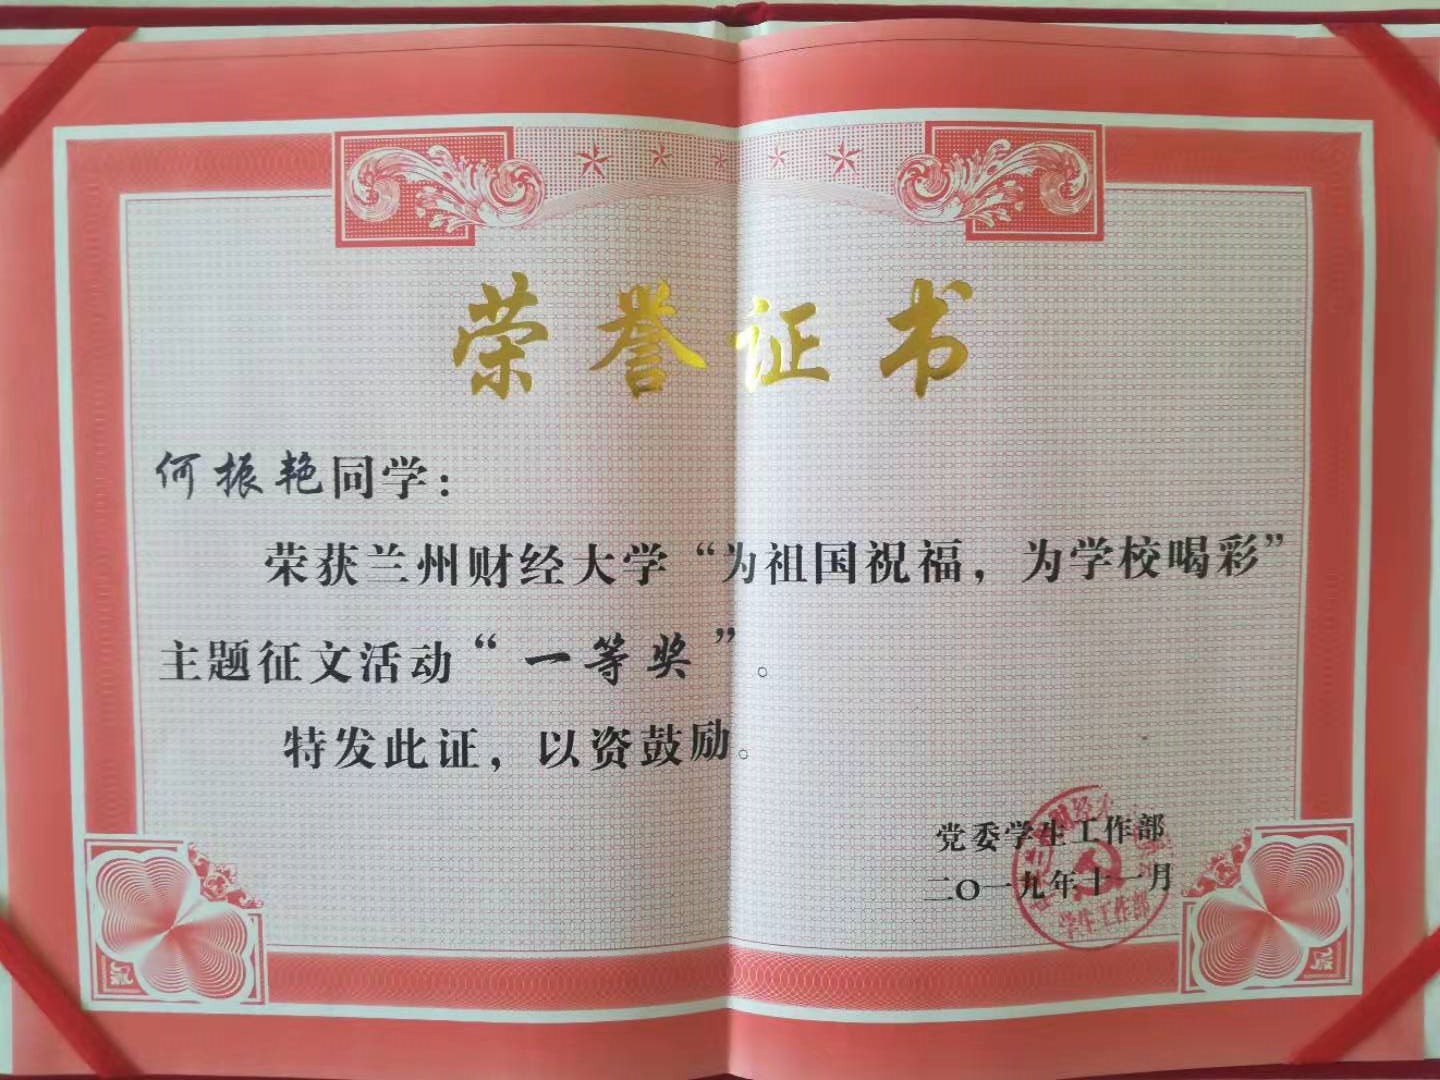 荣誉证书
何振艳同学：
荣获兰州财经大学“为祖国祝福，为学校喝彩”
主题征文活动“一等奖”。
特发此证，以资鼓励。
党委学生工作部
二〇一九年十一月
学生工作部